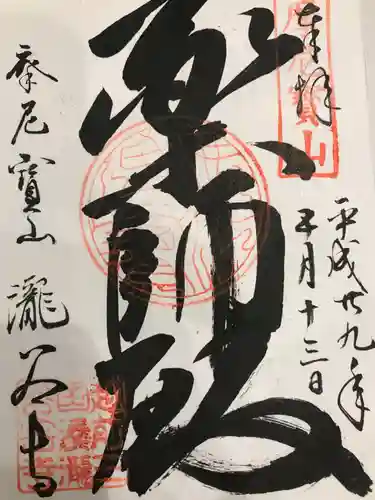 奉拝
平成廿九年
五月十三日
薬師殿
摩尼寶山
瀧谷寺